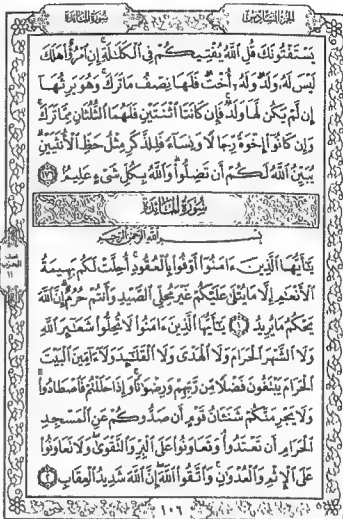 الجزء السادس
سورة المائدة
يَسْتَفْتُونَكَ قُلِ اللَّهُ يُفْتِيكُمْ فِي الْكَلَالَةِ إِنِ امْرُؤٌا هَلَكَ
لَيْسَ لَهُ وَلَدٌ وَلَهُ أُخْتٌ فَلَهَا نِصْفُ مَا تَرَكَ وَهُوَ يَرِثُهَا
إِن لَّمْ يَكُن لَّهَا وَلَدٌ فَإِن كَانَتَا اثْنَتَيْنِ فَلَهُمَا الثُّلُثَانِ مِمَّا تَرَكَ
وَإِن كَانُوا إِخْوَةً رِّجَالًا وَنِسَاءً فَلِلذَّكَرِ مِثْلُ حَظِّ الْأُنثَيَيْنِ
يُبَيِّنُ اللَّهُ لَكُمْ أَن تَضِلُّوا وَاللَّهُ بِكُلِّ شَيْءٍ عَلِيمٌ ١٧٦
سورة المائدة
بِسْمِ اللَّهِ الرَّحْمَٰنِ الرَّحِيمِ
يَٰأَيُّهَا الَّذِينَ ءَامَنُوا أَوْفُوا بِالْعُقُودِ أُحِلَّتْ لَكُم بَهِيمَةُ
الْأَنْعَٰمِ إِلَّا مَا يُتْلَىٰ عَلَيْكُمْ غَيْرَ مُحِلِّي الصَّيْدِ وَأَنتُمْ حُرُمٌ إِنَّ اللَّهَ
يَحْكُمُ مَا يُرِيدُ ١ يَٰأَيُّهَا الَّذِينَ ءَامَنُوا لَا تُحِلُّوا شَعَٰئِرَ اللَّهِ
وَلَا الشَّهْرَ الْحَرَامَ وَلَا الْهَدْيَ وَلَا الْقَلَٰئِدَ وَلَا ءَامِّينَ الْبَيْتَ
الْحَرَامَ يَبْتَغُونَ فَضْلًا مِّن رَّبِّهِمْ وَرِضْوَٰنًا وَإِذَا حَلَلْتُمْ فَاصْطَادُوا
وَلَا يَجْرِمَنَّكُمْ شَنَـَٔانُ قَوْمٍ أَن صَدُّوكُمْ عَنِ الْمَسْجِدِ
الْحَرَامِ أَن تَعْتَدُوا وَتَعَاوَنُوا عَلَى الْبِرِّ وَالتَّقْوَىٰ وَلَا تَعَاوَنُوا
عَلَى الْإِثْمِ وَالْعُدْوَٰنِ وَاتَّقُوا اللَّهَ إِنَّ اللَّهَ شَدِيدُ الْعِقَابِ ٢
نصف
الحزب
١١
١٠٦